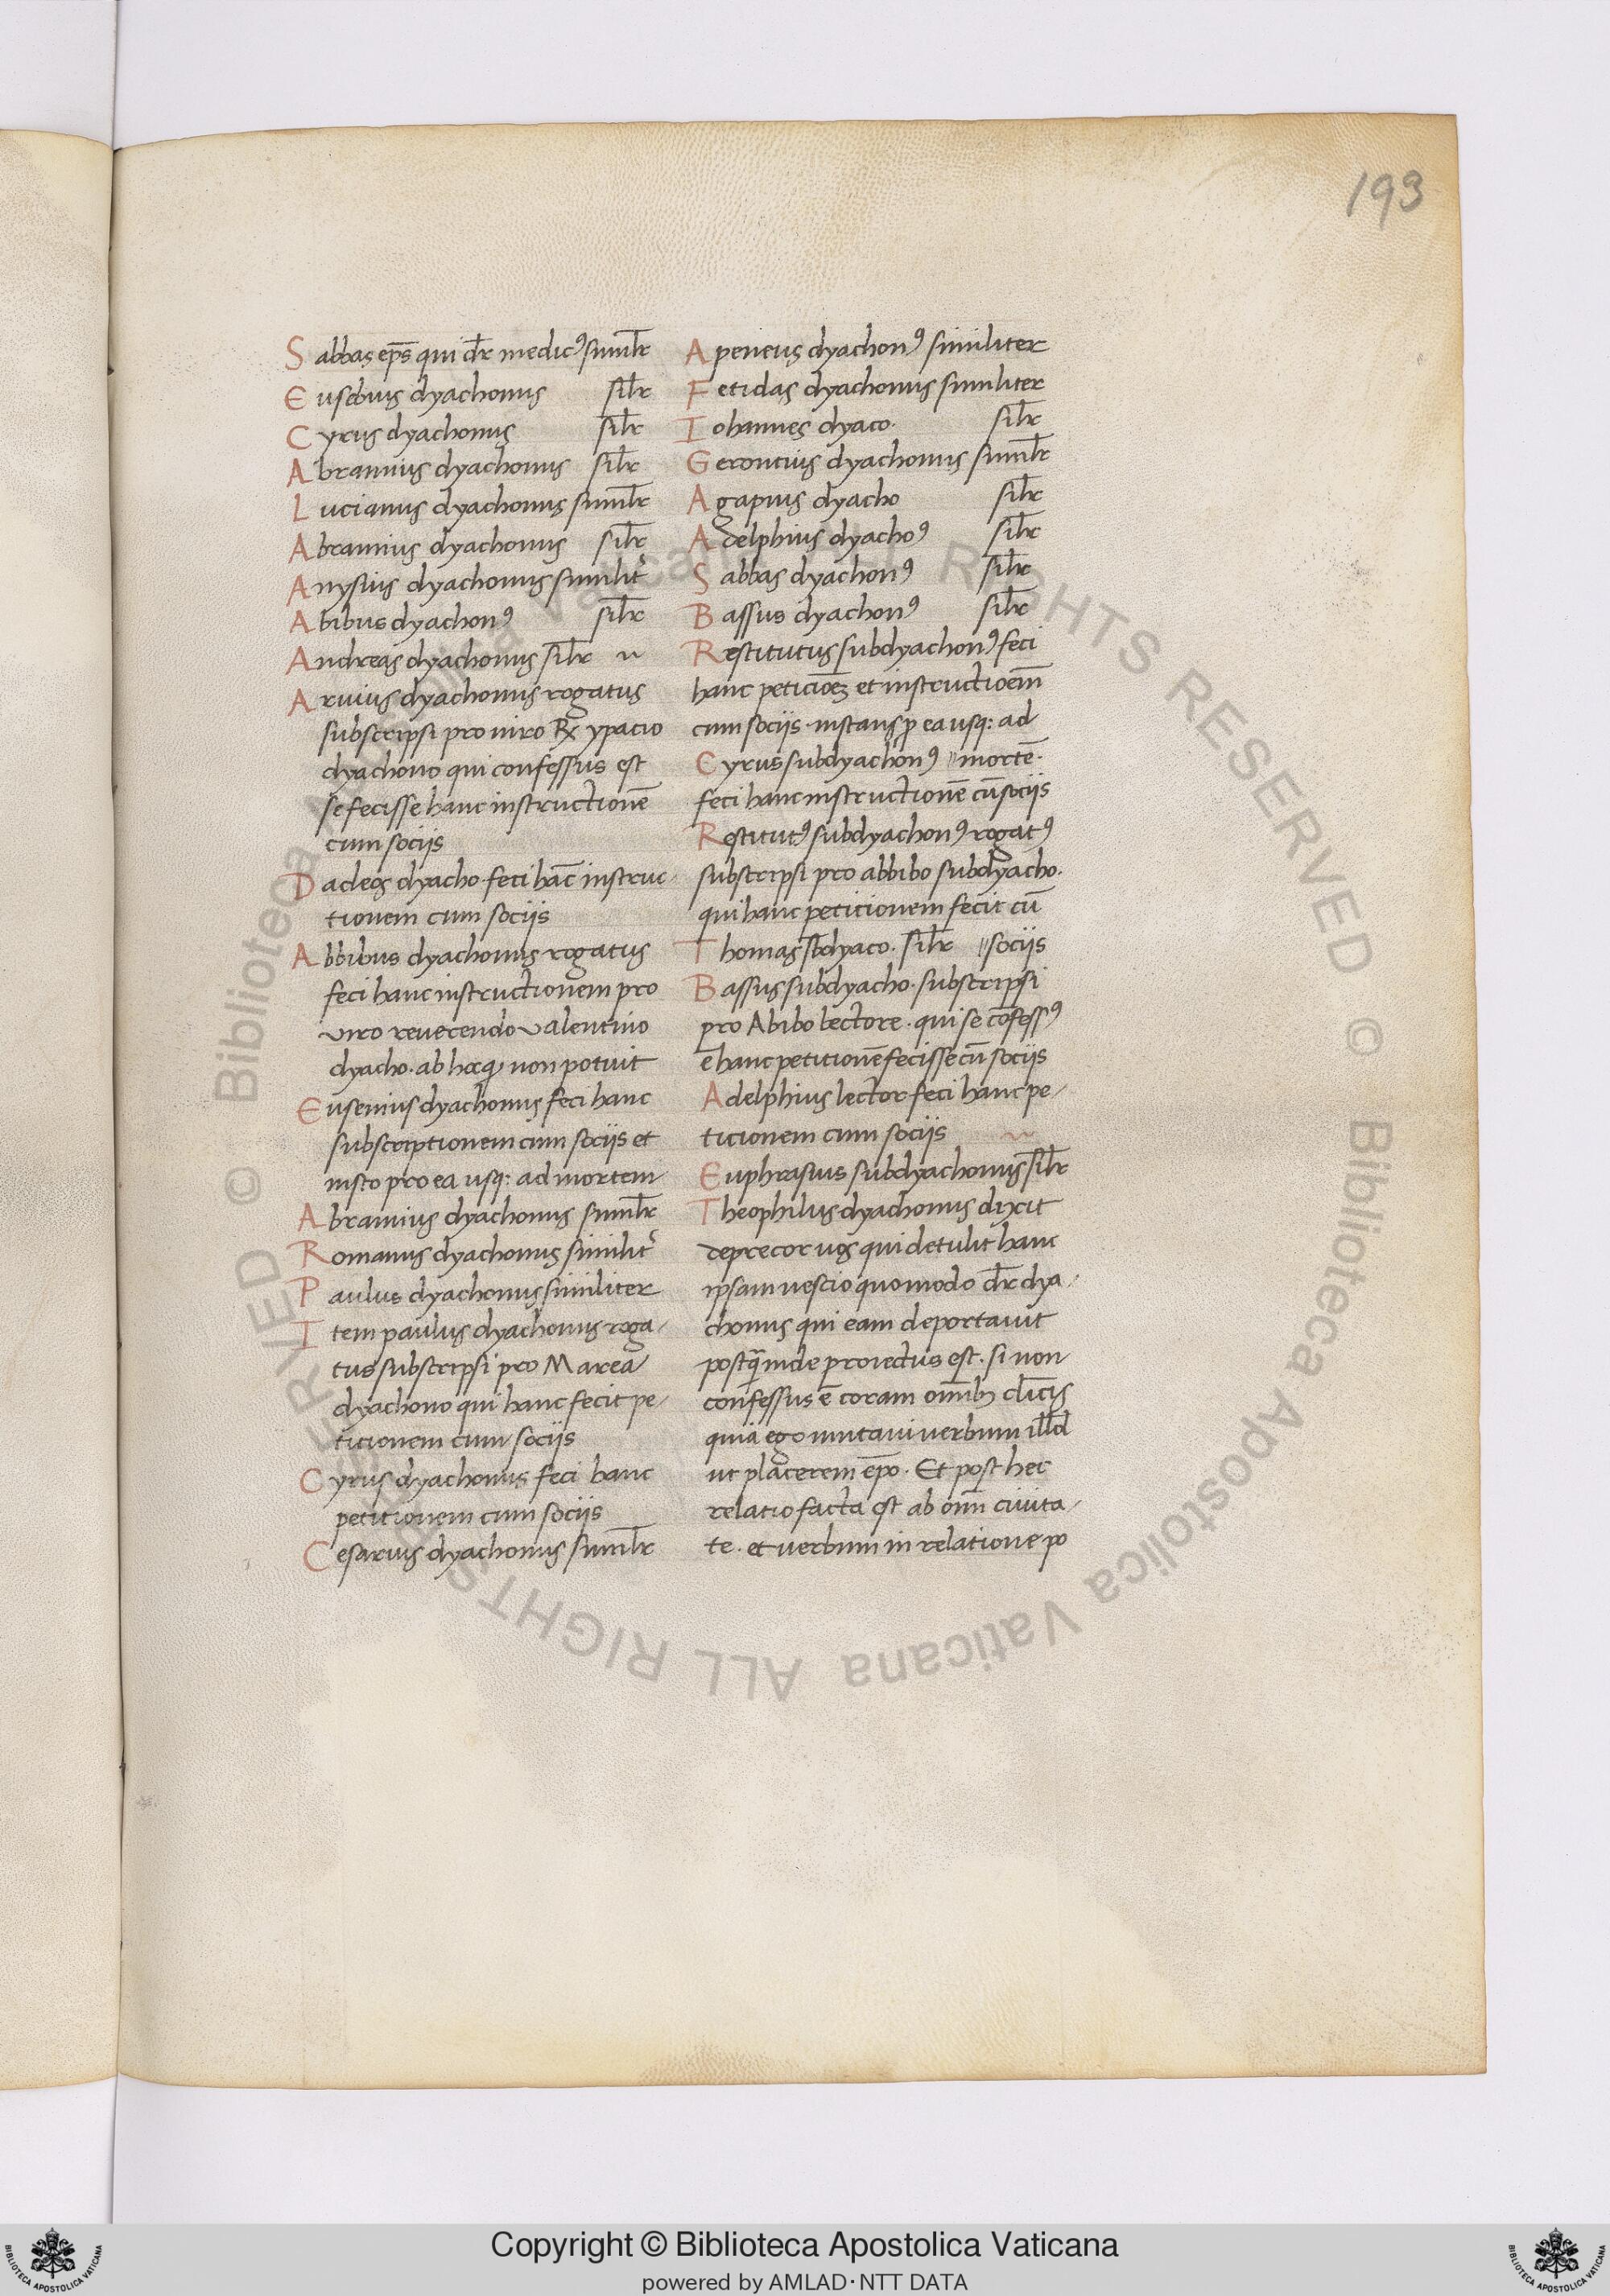 193
Sabbas ep̄s qui dr̄ medicꝰ simil̄r
Eusebius dyachonus sil̄r
Cyrus dyachonus sil̄r
Abramius dyachonus sil̄r
Lucianus dyachonus simil̄r
Abramius dyachonus sil̄r
Anysius dyachonus similit᷑
Abibus dyachonꝰ sil̄r
Andreas dyachonus sil̄r
Aruius dyachonus rogatus
subscripsi pro uiro R ypacio
dyachono qui confessus est
se fecisse hanc instructionē
cum sociis
Dadeos dyacho· feci hāc instruc-
tionem cum sociis
Abbibus dyachonus rogatus
feci hanc instructionem pro
viro reuerendo valentino
dyacho· ab hoc qꝫ non potuit
Eusenius dyachonus feci hanc
subscriptionem cum sociis et
insto pro ea usq: ad mortem
Abramius dyachonus simil̄r
Romanus dyachonus similit᷑
Paulus dyachonus similiter
Item paulus dyachonus roga-
tus subscripsi pro Marea
dyachono qui hanc fecit pe-
ticionem cum sociis
Cyrus dyachonus feci hanc
petitionem cum sociis
Cesarius dyachonus simil̄r
Apericus dyachonꝰ similiter
Fetidas dyachonus similiter
Iohannes dyaco· sil̄r
Geroncius dyachonus simil̄r
Agapius dyacho sil̄r
Adelphius dyachoꝰ sil̄r
Sabbas dyachonꝰ sil̄r
Bassus dyachonꝰ sil̄r
Restitutus subdyachonꝰ feci
hanc peticiōeꝫ et instructioēm
cum sociis· instans ꝓ ea usq: ad
Cyrus subdyachonꝰ //mortē·
feci hanc instructionē cū sociis
Restitutꝰ subdyachonꝰ rogatꝰ
subscripsi pro abbibo subdyacho·
qui hanc peticionem fecit cū
Thomas sb̄dyaco· sil̄r //sociis
Bassus subdyacho· subscripsi
pro Abibo lectore· qui se cōfessꝰ
ē hanc petitionē fecisse cū sociis
Adelphius lector feci hanc pe-
ticionem cum sociis
Euphrasius subdyachonus sil̄r
Theophilus dyachonus dixit
deprecor uos qui detulit hanc
ipsam nescio quomodo dr̄ dya-
chonus qui eam deportauit
postq̄ inde proiectus est· si non
confessus ē coram om̄ibꝫ cl̄icis
quia ego mutaui uerbum ill̄d
ut placerem ep̄o· Et post hec
relatio facta est ab om̄i ciuita-
te· et uerbum in relatione po
© Biblioteca Apostolica Vaticana ALL RIGHTS RESERVED
Copyright © Biblioteca Apostolica Vaticana
powered by AMLAD·NTT DATA
BIBLIOTECA APOSTOLICA VATICANA
BIBLIOTECA APOSTOLICA VATICANA